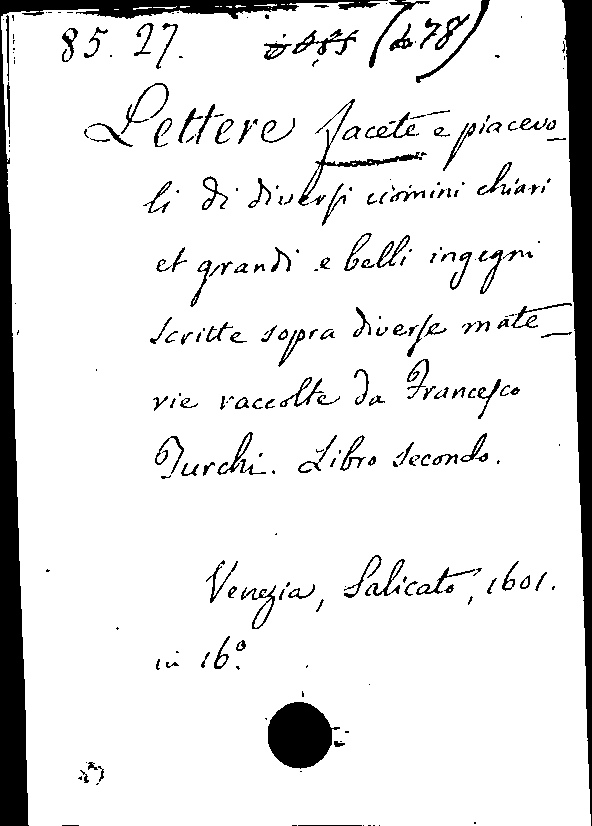 85. 27. (278)
Lettere facete e piacevo_
li di diversi uomini chiari
et grandi e belli ingegni
scritte sopra diverse mate_
rie raccolte da Francesco
Turchi. Libro secondo.
Venezia, Salicato, 1601.
in 16º.